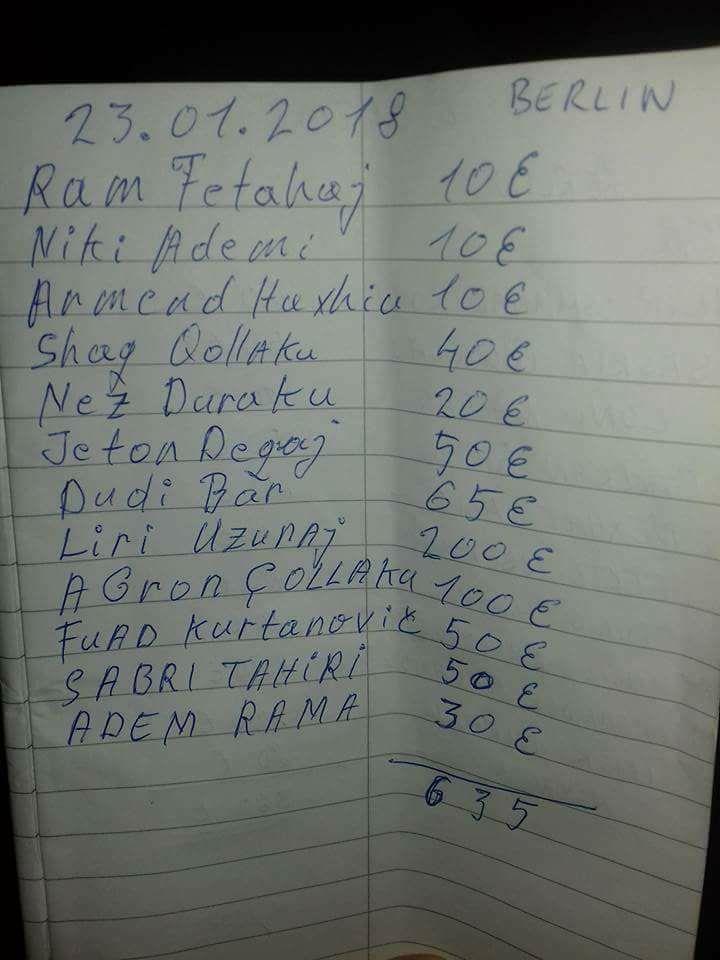 23.01.2018 BERLIN
Ram Fetahaj 10 €
Niki Ademi 10 €
Armend Haxhiu 10 €
Shaq Qollaku 40 €
Než Duraku 20 €
Jeton Degaj 50 €
Dudi Bar 65 €
Liri Uzunaj 200 €
AGron ÇOLLAKu 100 €
FuAD Kurtanović 50 €
SABRI TAHIRI 50 €
ADEM RAMA 30 €
635